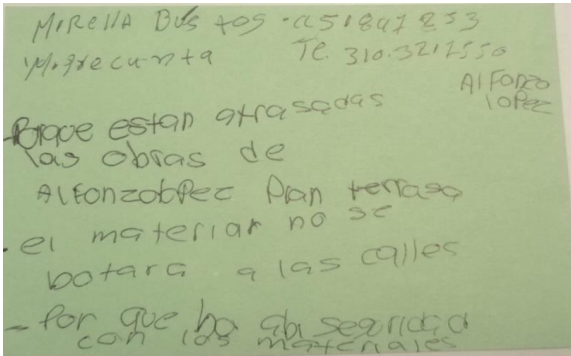 MIRellA Bustos - c.c 51847253
Mi precunta Te. 310.3217550
Alfonzo
lopez
- Porque estan atrasadas
las obras de
Alfonzo lopez Plan terrasa
- el material no se
botara a las calles
- Por que no ab seguridad
con los materiales